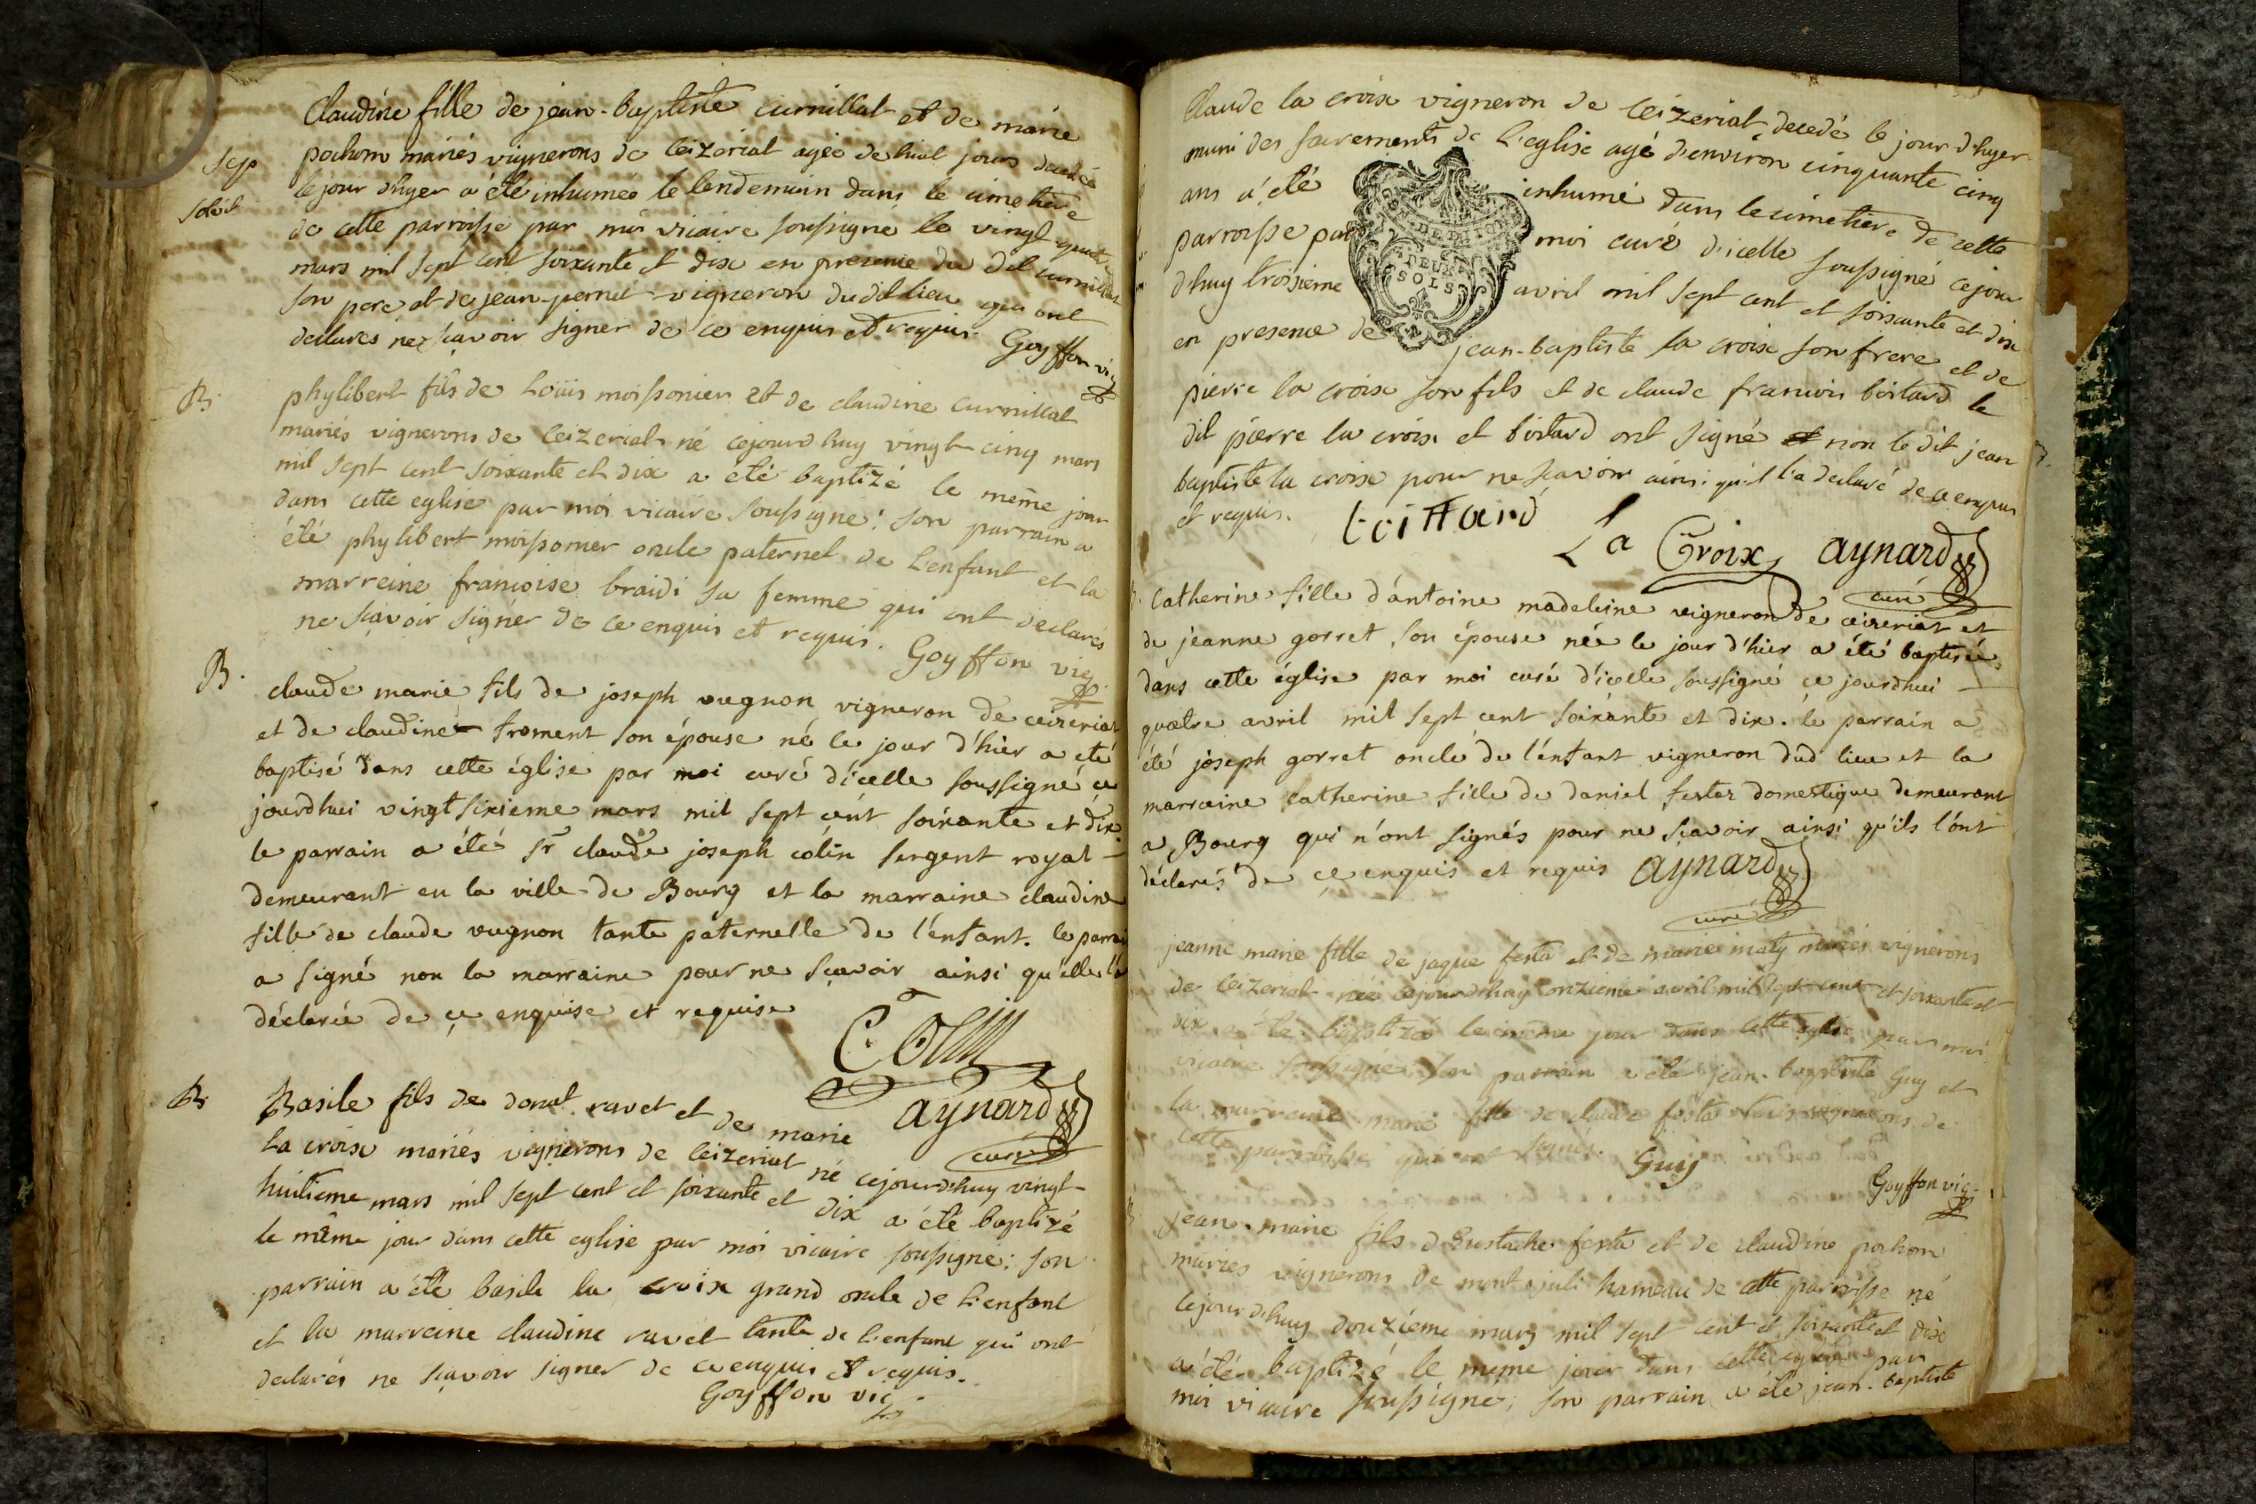 Claudine fille de jean-baptiste curnillat et de marie
pochon mariés vignerons de Ceizeriat agée de huit jours decedée
Sep
le jour d'hyer a été inhumée le lendemain dans le cimetiere
Solvit
de cette parroisse par moi vicaire soussigne le vingt quatre
mars mil sept cent soixante et dix en presence du dit curnillat
son pere et de jean pernet vigneron dudit lieu qui ont
declarés ne sçavoir signer de ce enquis et requis. Goyffon vic
B.
phylibert fils de Loüis moissonier et de claudine curnillat
mariés vignerons de Ceizeriat né cejourdhuy vingt cinq mars
mil sept cent soixante et dix a été baptizé le même jour
dans cette eglise par moi vicaire soussigné: son parrain a
été phylibert moissonier oncle paternel de l'enfant et la
marreine francoise braidi sa femme qui ont declarés
ne sçavoir signer de ce enquis et requis. Goyffon vic
B.
claude marie fils de joseph vugnon vigneron de ceizeriat
et de claudine froment son épouse né le jour d'hier a été
baptisé dans cette église par moi curé d'icelle soussigné ce
jourdhui vingt sixieme mars mil sept cent soixante et dix
le parrain a été Sr claude joseph colin sergent royal
demeurant en la ville de Bourg et la marraine claudine
fille de claude vugnon tante paternelle de l'enfant. le parrain
a signé non la marraine pour ne sçavoir ainsi qu'elle l'a
déclarée de ce enquise et requise
C. Colin
aynard
curé
B.
Basile fils de donat ravet et de marie
la croix mariés vignerons de Ceizeriat né cejourdhuy vingt
huitieme mars mil sept cent et soixante et dix a été baptizé
le même jour dans cette eglise par moi vicaire soussigne: son
parrain a été basile la croix grand oncle de l'enfant
et la marreine claudine ravet tante de l'enfant qui ont
declarés ne sçavoir signer de ce enquis et requis.
Goyffon vic
Claude la croix vigneron de Ceizeriat decedé le jour d'hyer
muni des sacrements de l'eglise agé d'environ cinquante cinq
ans a été inhumé dans le cimetiere de cette
parroisse par moi curé d'icelle soussigné cejour
d'huy troisieme avril mil sept cent et soixante et dix
DEUX
SOLS
en presence de jean-baptiste la croix son frere et de
pierre la croix son fils et de claude francois boitard le
dit pierre la croix et boitard ont signé et non le dit jean
baptiste la croix pour ne sçavoir ainsi qu'il l'a declaré de ce enquis
et requis.
La Croix aynard
curé
Catherine fille d'antoine madeleine vigneron de ceizeriat et
de jeanne gorret son épouse née le jour d'hier a été baptisée
dans cette église par moi curé d'icelle soussigné ce jourdhui
quatre avril mil sept cent soixante et dix. le parrain a
été joseph gorret oncle de l'enfant vigneron dud lieu et la
marraine catherine fille de daniel festaz domestique demeurant
a Bourg qui n'ont signés pour ne sçavoir ainsi qu'ils l'ont
déclarés de ce enquis et requis aynard
curé
jeanne marie fille de jaque festa et de marie maty mariés vignerons
de Ceizeriat née cejourdhuy onzieme avril mil sept cent et soixante et
dix a été baptizée le même jour dans cette eglise par moi
vicaire soussigne: son parrain a été jean-baptiste Guy et
la marreine marie fille de claude festa tous vignerons de
cette parroisse qui ont signés.
Guy
Goyffon vic
jean-marie fils d'Eustache festa et de claudine pochon
mariés vignerons de mont juli hameau de cette parroisse né
cejourd'huy douziéme mars mil sept cent et soixante et dix
a été baptizé le meme jour dans cette eglise par
moi vicaire soussigne; son parrain a été jean-baptiste